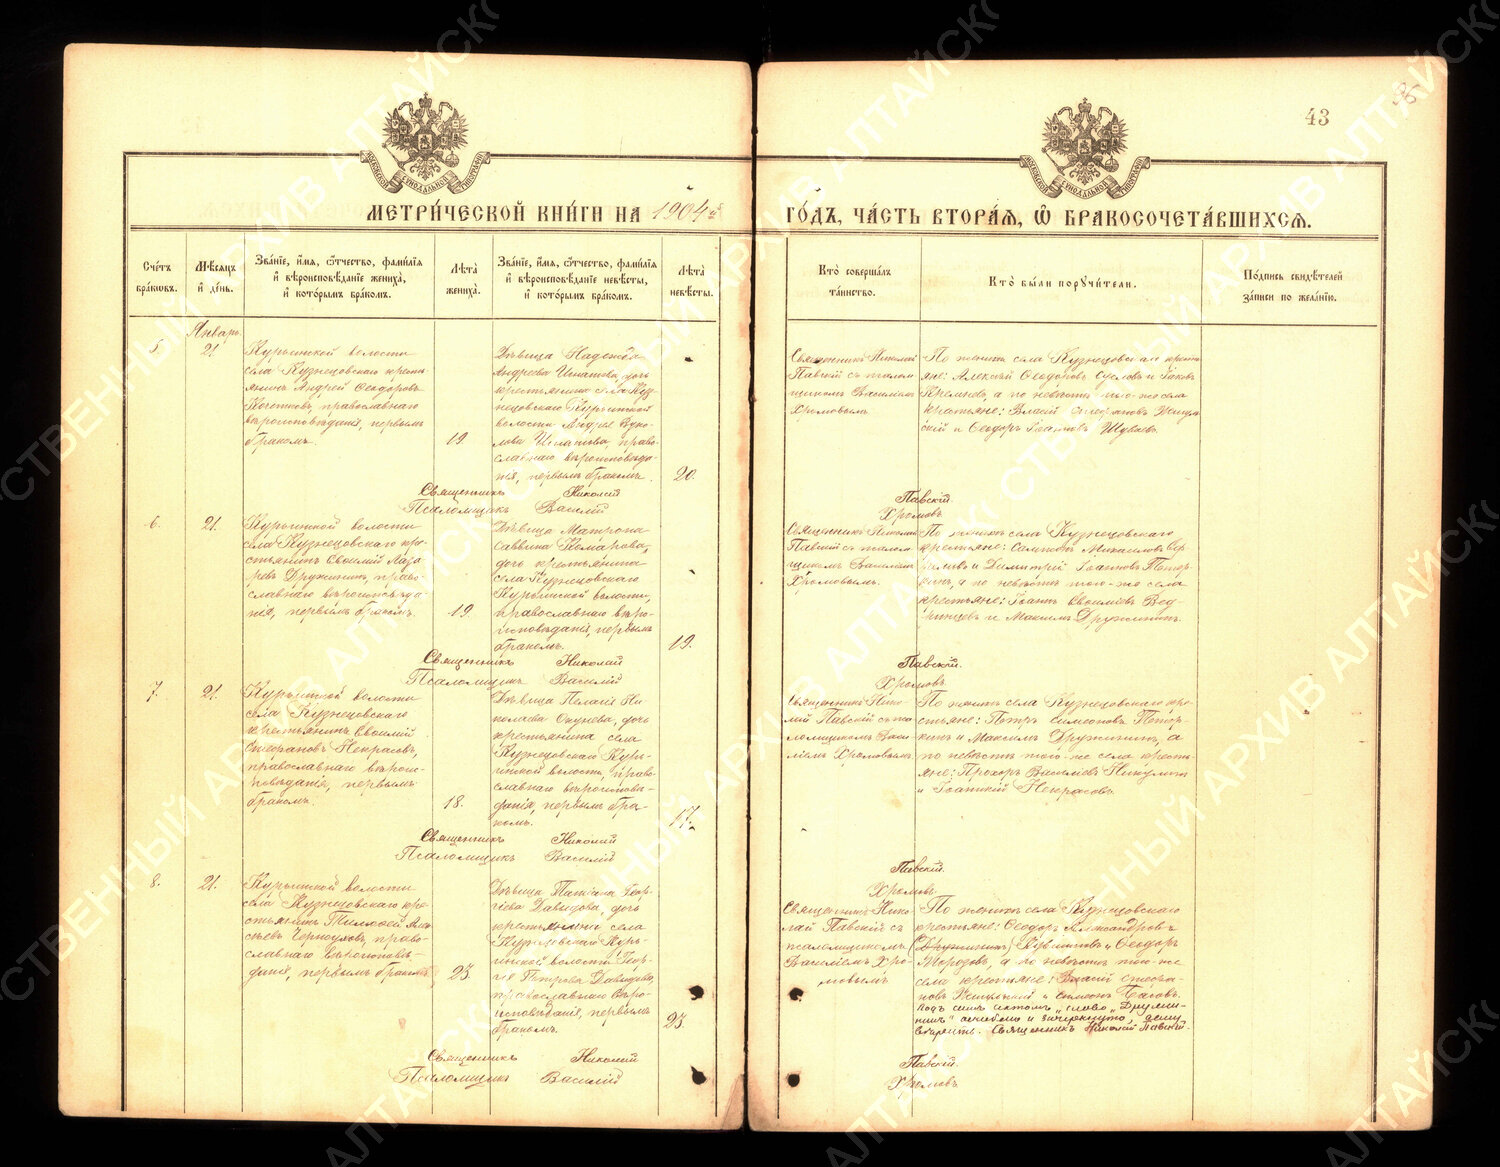 43
МЕТРИ́ЧЕСКОЙ КНИ́ГИ НА 1904й ГО́ДЪ, ЧА́СТЬ ВТОРА́Я, Ѡ БРАКОСОЧЕТА́ВШИХСЯ.
Сче́тъ бра́кѡвъ.
Мѣ́сяцъ и де́нь.
Зва́нїе, и́мя, ѻ́тчество, фами́лїя
и вѣроисповѣ́данїе жениха̀,
и кото́рымъ бра́комъ.
Лѣта̀ жениха̀.
Зва́нїе, и́мя, ѻ́тчество, фами́лїя
и вѣроисповѣ́данїе невѣ́сты,
и кото́рымъ бра́комъ.
Лѣта̀ невѣ́сты.
Кто̀ соверша́лъ та́инство.
Кто̀ бы́ли порꙋчи́тели.
По́дпись свидѣ́телей за́писи по жела́нїю.
Январь
5.
21
Курьинской волости
села Кузнецовскаго кресть
янинъ Андрей Ѳеодоровъ
Кочетковъ, православнаго
вѣроисповѣданія, первымъ
бракомъ.
19.
Дѣвица Надежда
Андреева Игнатова, дочь
крестьянина села Куз
нецовскаго Курьинской
волости Андрея
Игнатова, право
славнаго вѣроисповѣда
нія, первымъ бракомъ.
20.
Священникъ Николай
Павскій съ псалом
щикомъ Василіемъ
Хромовымъ.
По женихѣ села Кузнецовскаго кресть
яне: Алексѣй Ѳеодоровъ Сусловъ и Іаковъ
а по невѣстѣ того-же села
крестьяне: Власій Стефановъ
и Ѳеодоръ Іоанновъ Шуваевъ.
Священникъ Николай Павскій.
Псаломщикъ Василій Хромовъ.
6.
21.
Курьинской волости
села Кузнецовскаго кре
стьянинъ Евсимій Лаза
ревъ Дружининъ, право
славнаго вѣроисповѣда
нія, первымъ бракомъ.
19.
Дѣвица Матрона
Саввина Комарова,
дочь крестьянина
села Кузнецовскаго
Курьинской волости,
православнаго вѣро
исповѣданія, первымъ
бракомъ.
19.
Священникъ Николай
Павскій съ псалом
щикомъ Василіемъ
Хромовымъ.
По женихѣ села Кузнецовскаго
крестьяне: Сампсонъ Михаиловъ
и Димитрій Іоанновъ Петор
кинъ, а по невѣстѣ того-же села
крестьяне: Іоаннъ Евсиміевъ
и Максимъ Дружининъ.
Священникъ Николай Павскій.
Псаломщикъ Василій Хромовъ.
7.
21.
Курьинской волости
села Кузнецовскаго
крестьянинъ Евсимій
Стефановъ Некрасовъ,
православнаго вѣроис
повѣданія, первымъ
бракомъ.
18.
Дѣвица Пелагія Ни
колаева Окунева, дочь
крестьянина села
Кузнецовскаго Курь
инской волости, право
славнаго вѣроисповѣ
данія, первымъ бра
комъ.
17.
Священникъ Нико
лай Павскій съ пса
ломщикомъ Васи
ліемъ Хромовымъ.
По женихѣ села Кузнецовскаго кре
стьяне: Петръ Симеоновъ Петор
кинъ и Максимъ Дружининъ, а
по невѣстѣ того-же села кресть
яне: Прохоръ Василіевъ Никулинъ
и Іоанникій Некрасовъ.
Священникъ Николай Павскій.
Псаломщикъ Василій Хромовъ.
8.
21.
Курьинской волости
села Кузнецовскаго кре
стьянинъ Тимоѳей
православнаго вѣроисповѣ
данія, первымъ бракомъ
23.
Дѣвица Татіана Геор
гіева Давыдова, дочь
крестьянина села
Кузнецовскаго Курь
инской волости Геор
гія Петрова Давыдова,
православнаго вѣро
исповѣданія, первымъ
бракомъ.
23.
Священникъ Нико
лай Павскій съ
псаломщикомъ
Василіемъ Хро
мовымъ
По женихѣ села Кузнецовскаго
крестьяне: Ѳеодоръ Александровъ
(Дружининъ) и Ѳеодоръ
Морозовъ, а по невѣстѣ того-же
села крестьяне: Власій Стефа
новъ и Симеонъ Басовъ.
Подъ симъ актомъ слово „Дружи
нинъ" ошибочно и зачеркнуто,
вѣрить. Священникъ Николай Павскій.
Священникъ Николай Павскій.
Псаломщикъ Василій Хромовъ.